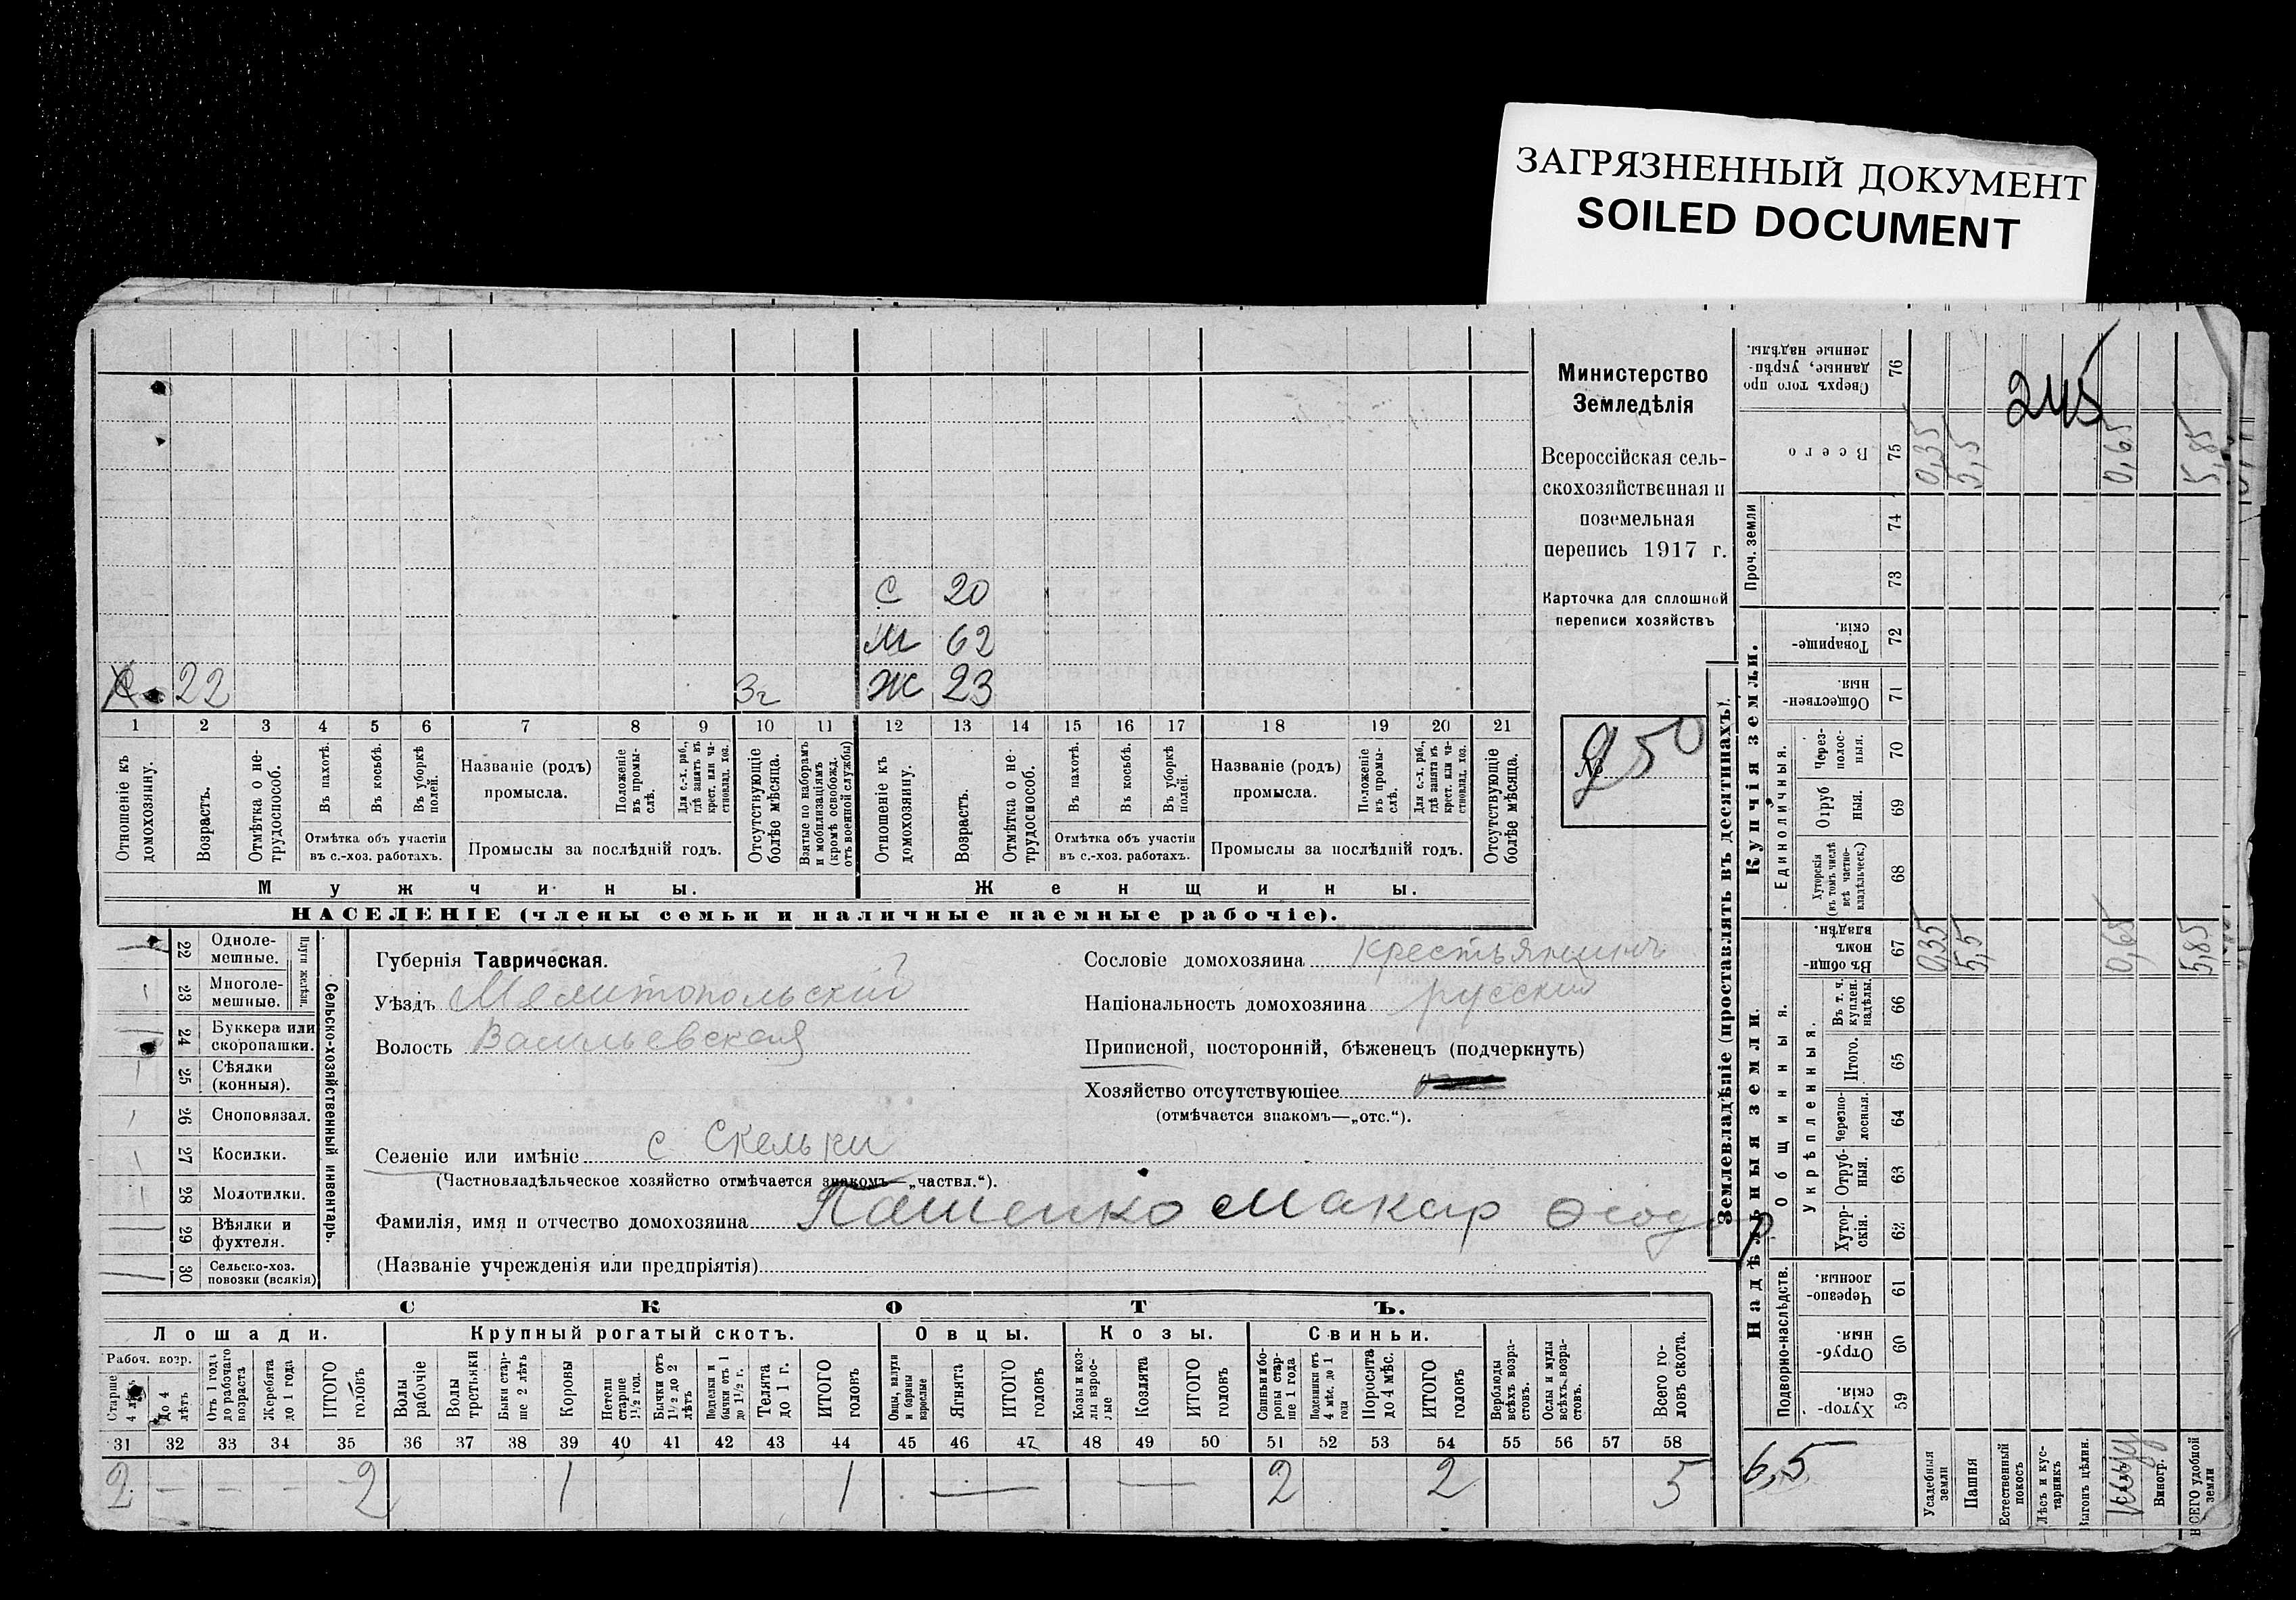 ЗАГРЯЗНЕННЫЙ ДОКУМЕНТ
SOILED DOCUMENT
С 20
М 62
22 3г Ж 23
1 2 3 4 5 6 7 8 9 10 11 12 13 14 15 16 17 18 19 20 21
Отношеніе къ домохозяину.
Возрастъ.
Отмѣтка о не-
трудоспособ.
Въ пахотѣ.
Въ косьбѣ.
Въ уборкѣ
полей.
Отмѣтка объ участіи
въ с.-хоз. работахъ.
Названіе (родъ)
промысла.
Положеніе
въ промы-
слѣ.
Для с.-х. раб.,
гдѣ занятъ въ
крест. или ча-
стновлад. хоз.
Промыслы за послѣдній годъ.
Отсутствующіе
болѣе мѣсяца.
Взятые по наборамъ
и мобилизаціямъ
(кромѣ освобожд.
отъ военной службы)
Отношеніе къ
домохозяину.
Возрастъ.
Отмѣтка о не-
трудоспособ.
Въ пахотѣ.
Въ косьбѣ.
Въ уборкѣ
полей.
Отмѣтка объ участіи
въ с.-хоз. работахъ.
Названіе (родъ)
промысла.
Положеніе
въ промы-
слѣ.
Для с.-х. раб.,
гдѣ занята въ
крест. или ча-
стновлад. хоз.
Промыслы за послѣдній годъ.
Отсутствующіе
болѣе мѣсяца.
Мужчины. Женщины.
НАСЕЛЕНІЕ (члены семьи и наличные наемные рабочіе).
Министерство
Земледѣлія
Всероссійская сель-
скохозяйственная и
поземельная
перепись 1917 г.
Карточка для сплошной
переписи хозяйствъ
250
22 Одноле-
мешные.
23 Многоле-
мешные.
Плуги желѣз.
24 Буккера или
скоропашки.
25 Сѣялки
(конныя).
26 Сноповязал.
27 Косилки.
28 Молотилки.
29 Вѣялки и
фухтеля.
30 Сельско-хоз.
повозки (всякія)
Сельско-хозяйственный инвентарь.
Губернія Таврическая.
Уѣздъ Мелитопольскій
Волость Васильевская
Сословіе домохозяина крестьянинъ
Національность домохозяина русскій
Приписной, посторонній, бѣженецъ (подчеркнуть)
Хозяйство отсутствующее
(отмѣчается знакомъ—„отс.“).
Селеніе или имѣніе с Скельки
(Частновладѣльческое хозяйство отмѣчается знакомъ—„частвл.“).
Фамилія, имя и отчество домохозяина Пашенко Макар Ѳеодор
(Названіе учрежденія или предпріятія)
СКОТЪ.
Лошади. Крупный рогатый скотъ. Овцы. Козы. Свиньи.
Рабоч. возр.
Старше
4 лѣтъ
До 4
лѣтъ
Отъ 1 года
до рабочаго
возраста
Жеребята
до 1 года
ИТОГО
головъ
Волы
рабочіе
Волы
третьяки
Быки стар-
ше 2 лѣтъ
Коровы
Нетели
старше
1½ год.
Бычки отъ
1½ до 2
лѣтъ
Подтелки и
бычки отъ 1
до 1½ г.
Телята
до 1 г.
ИТОГО
головъ
Овцы, валухи
и бараны
взрослые
Ягнята
ИТОГО
головъ
Козы и коз-
лы взрос-
лые
Козлята
ИТОГО
головъ
Свиньи и бо-
ровы стар-
ше 1 года
Подсвинки отъ
4 мѣс. до 1
года
Поросята
до 4 мѣс.
ИТОГО
головъ
Верблюды
всѣхъ возра-
стовъ.
Ослы и мулы
всѣхъ возра-
стовъ.
Всего го-
ловъ скота.
31 32 33 34 35 36 37 38 39 40 41 42 43 44 45 46 47 48 49 50 51 52 53 54 55 56 57 58
2 — — — 2 1 1 — — 2 2 5
Землевладѣніе (проставлять въ десятинахъ).
Надѣльныя земли. Купчія земли.
Подворно-наслѣдств.
Общинныя.
Укрѣпленныя.
Единоличныя.
Проч. земли
Хутор-
скія. 59
Отруб-
ныя 60
Черезпо-
лосныя. 61
Хутор-
скія. 62
Отруб-
ныя. 63
Черезпо-
лосныя. 64
Итого. 65
Въ т. ч.
куплен.
надѣлы. 66
Въ общи-
номъ
владѣн. 67
Хуторскія
(въ томъ числѣ
всѣ частно-
владѣльческ.) 68
Отруб
ныя. 69
Через-
полос-
ныя. 70
Обществен-
ныя. 71
Товарище-
скія. 72
73
74
Всего 75
Сверхъ того про
данные, укрѣп-
ленные надѣлы. 76
245
0,35 5,5 0,65 5,85
0,35 5,5 0,65 5,85
6,5
Усадебныя
земли
Пашня
Естественный
покосъ
Лѣсъ и кус-
тарникъ
Выгонъ цѣлин.
Виногр.
ВСЕГО удобной
земли